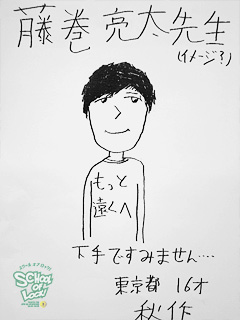 藤巻亮太先生
(イメージ?)
もっと
遠くへ
下手ですみません‥‥
東京都 16才
秋作
SCHOOL
OF
LOCK!